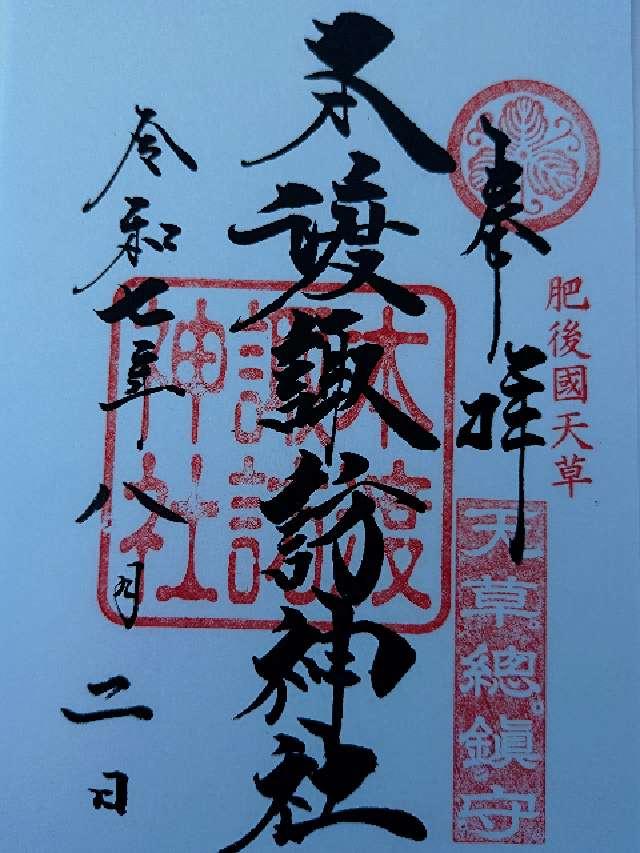 奉拝
肥後國天草
天草總鎮守
本渡諏訪神社
本渡
諏訪
神社
令和七年八月二日